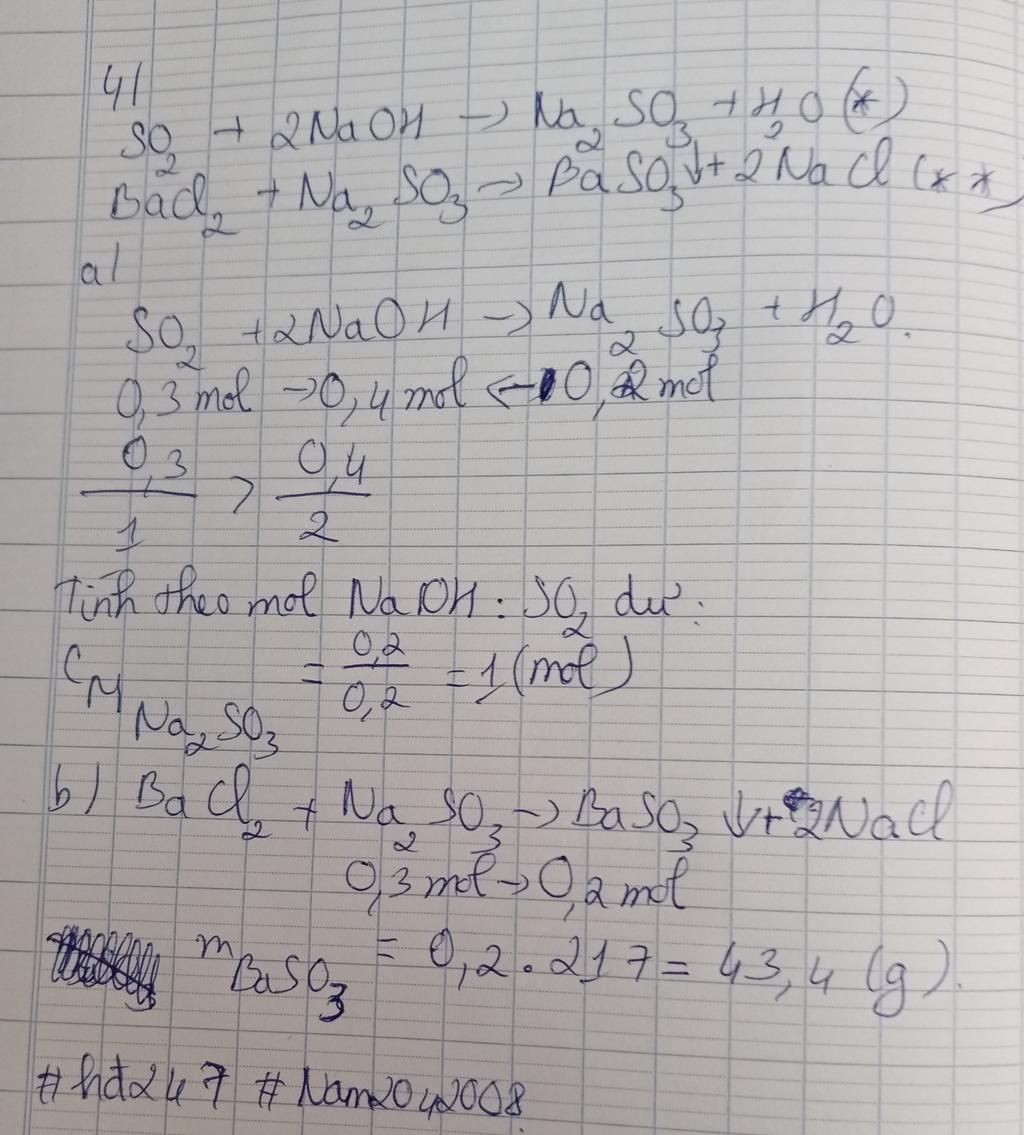 4/
SO2 + 2NaOH → Na2SO3 + H2O (*)
BaCl2 + Na2SO3 → BaSO3↓ + 2NaCl (**)
a/
SO2 + 2NaOH → Na2SO3 + H2O.
0,3 mol → 0,4 mol ← 0,2 mol
0,3/1 > 0,4/2
Tính theo mol NaOH : SO2 dư :
CM Na2SO3 = 0,2/0,2 = 1 (mol)
b) BaCl2 + Na2SO3 → BaSO3↓ + 2NaCl
0,3 mol → 0,2 mol
mBaSO3 = 0,2 . 217 = 43,4 (g).
#hđ247 #Nam2042008